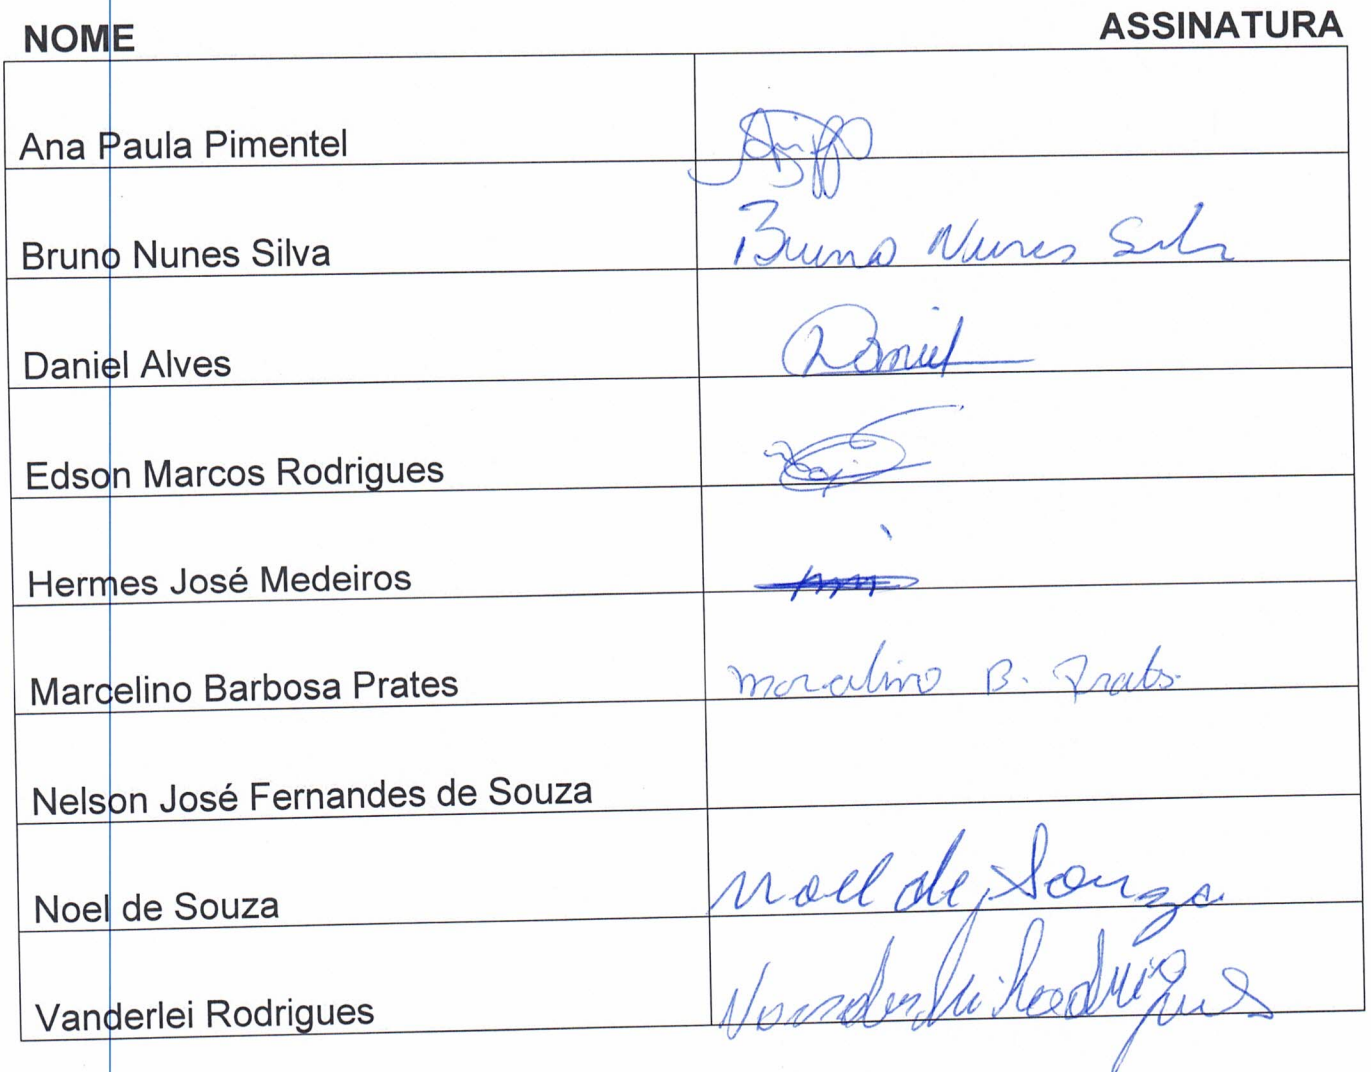 NOME ASSINATURA
Ana Paula Pimentel
Bruno Nunes Silva Bruno Nunes Silv
Daniel Alves Daniel
Edson Marcos Rodrigues
Hermes José Medeiros
Marcelino Barbosa Prates Marcelino B. Prates
Nelson José Fernandes de Souza
Noel de Souza Noel de Souza
Vanderlei Rodrigues Vanderlei Rodrigues